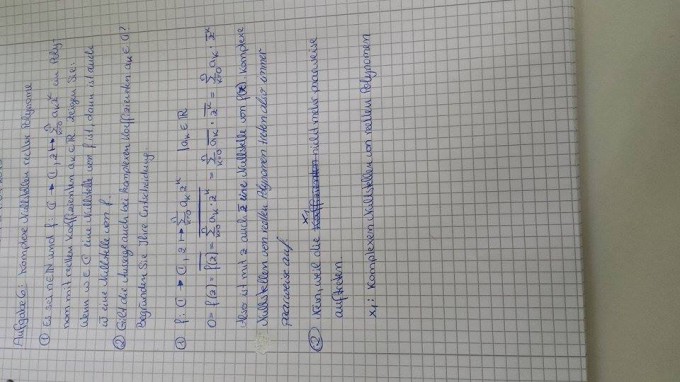 Aufgabe 6: Komplexe Nullstellen reeller Polynome
① Es sei n∈ℕ und f: ℂ → ℂ, z ↦ ∑ₖ₌₀ⁿ aₖ zᵏ ein Poly-
nom mit reellen Koeffizienten aₖ ∈ ℝ. Zeigen Sie:
Wenn w ∈ ℂ eine Nullstelle von f ist, dann ist auch
w̄ eine Nullstelle von f.
② Gilt die Aussage auch bei komplexen Koeffizienten aₖ ∈ ℂ?
Begründen Sie Ihre Entscheidung
① f: ℂ → ℂ, z ↦ ∑ₖ₌₀ⁿ aₖ zᵏ | aₖ ∈ ℝ
Also ist mit z auch z̄ eine Nullstelle von f(z). Komplexe
Nullstellen von reellen Polynomen treten also immer
paarweise auf
② Nein, weil die x₁ nicht mehr paarweise
auftreten
x₁: Komplexen Nullstellen von reellen Polynomen